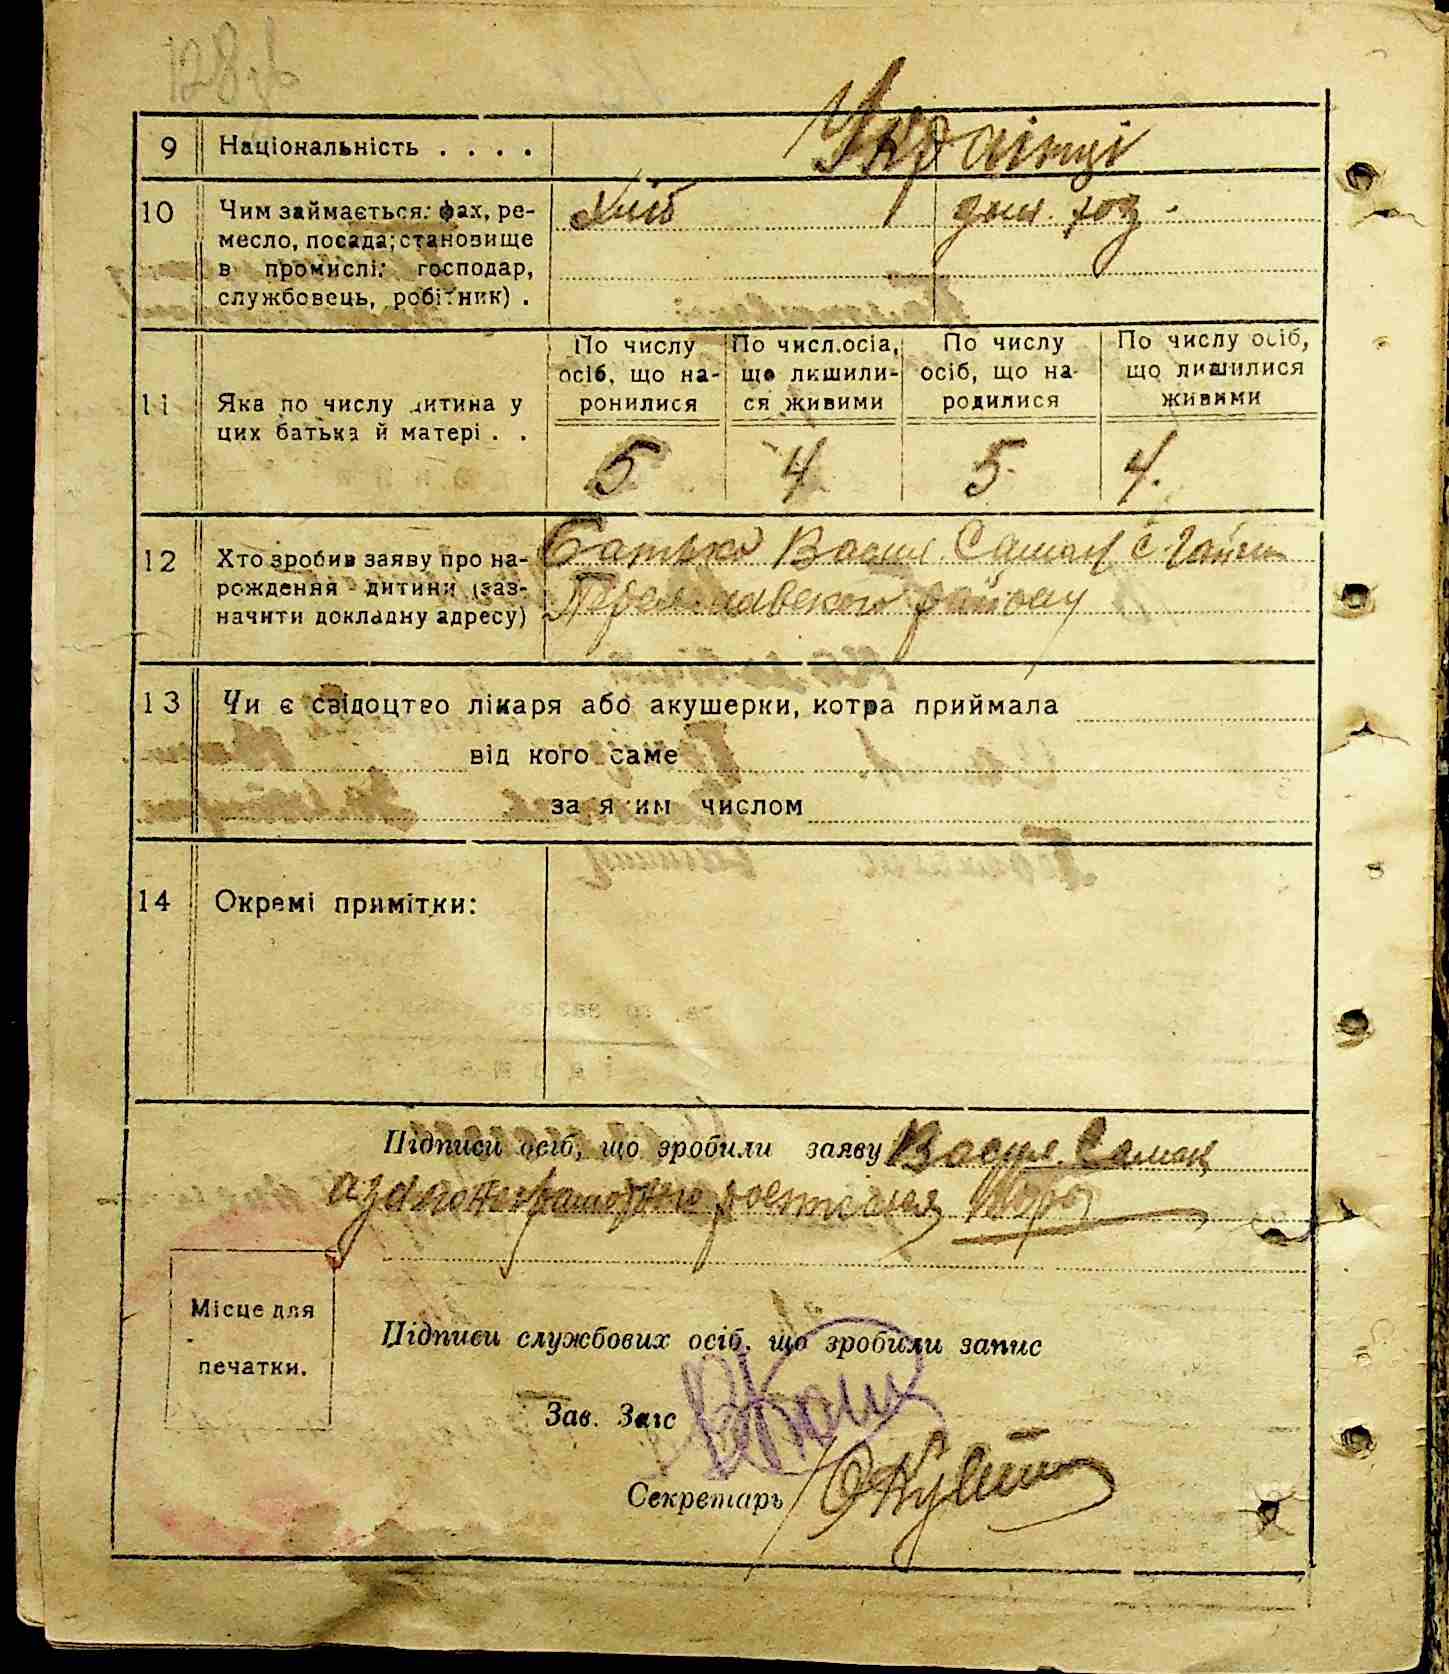 128 зв
9 Національність . . . . Українці
10 Чим займається: фах, ре- Хліб дом. год.
месло, посада; становище
в промислі: господар,
службовець, робітник) .
По числу По числ.осіа, По числу По числу осіб,
осіб, що на- що лкшили- осіб, що на- що лишилися
ронилися ся живими родилися живими
11 Яка по числу дитина у
цих батька й матері . .
5 4 5. 4.
12 Хто зробив заяву про на- Батько Васил Саман с.
рождення дитини (заз- Переяславского району
начити докладну адресу)
13 Чи є свідоцтво лікаря або акушерки, котра приймала
від кого саме
за яким числом
14 Окремі примітки:
Підписи осіб, що зробили заяву Васул. Саман
а за
Місце для
печатки.
Підписи службових осіб, що зробили запис
Зав. Загс
Секретарь